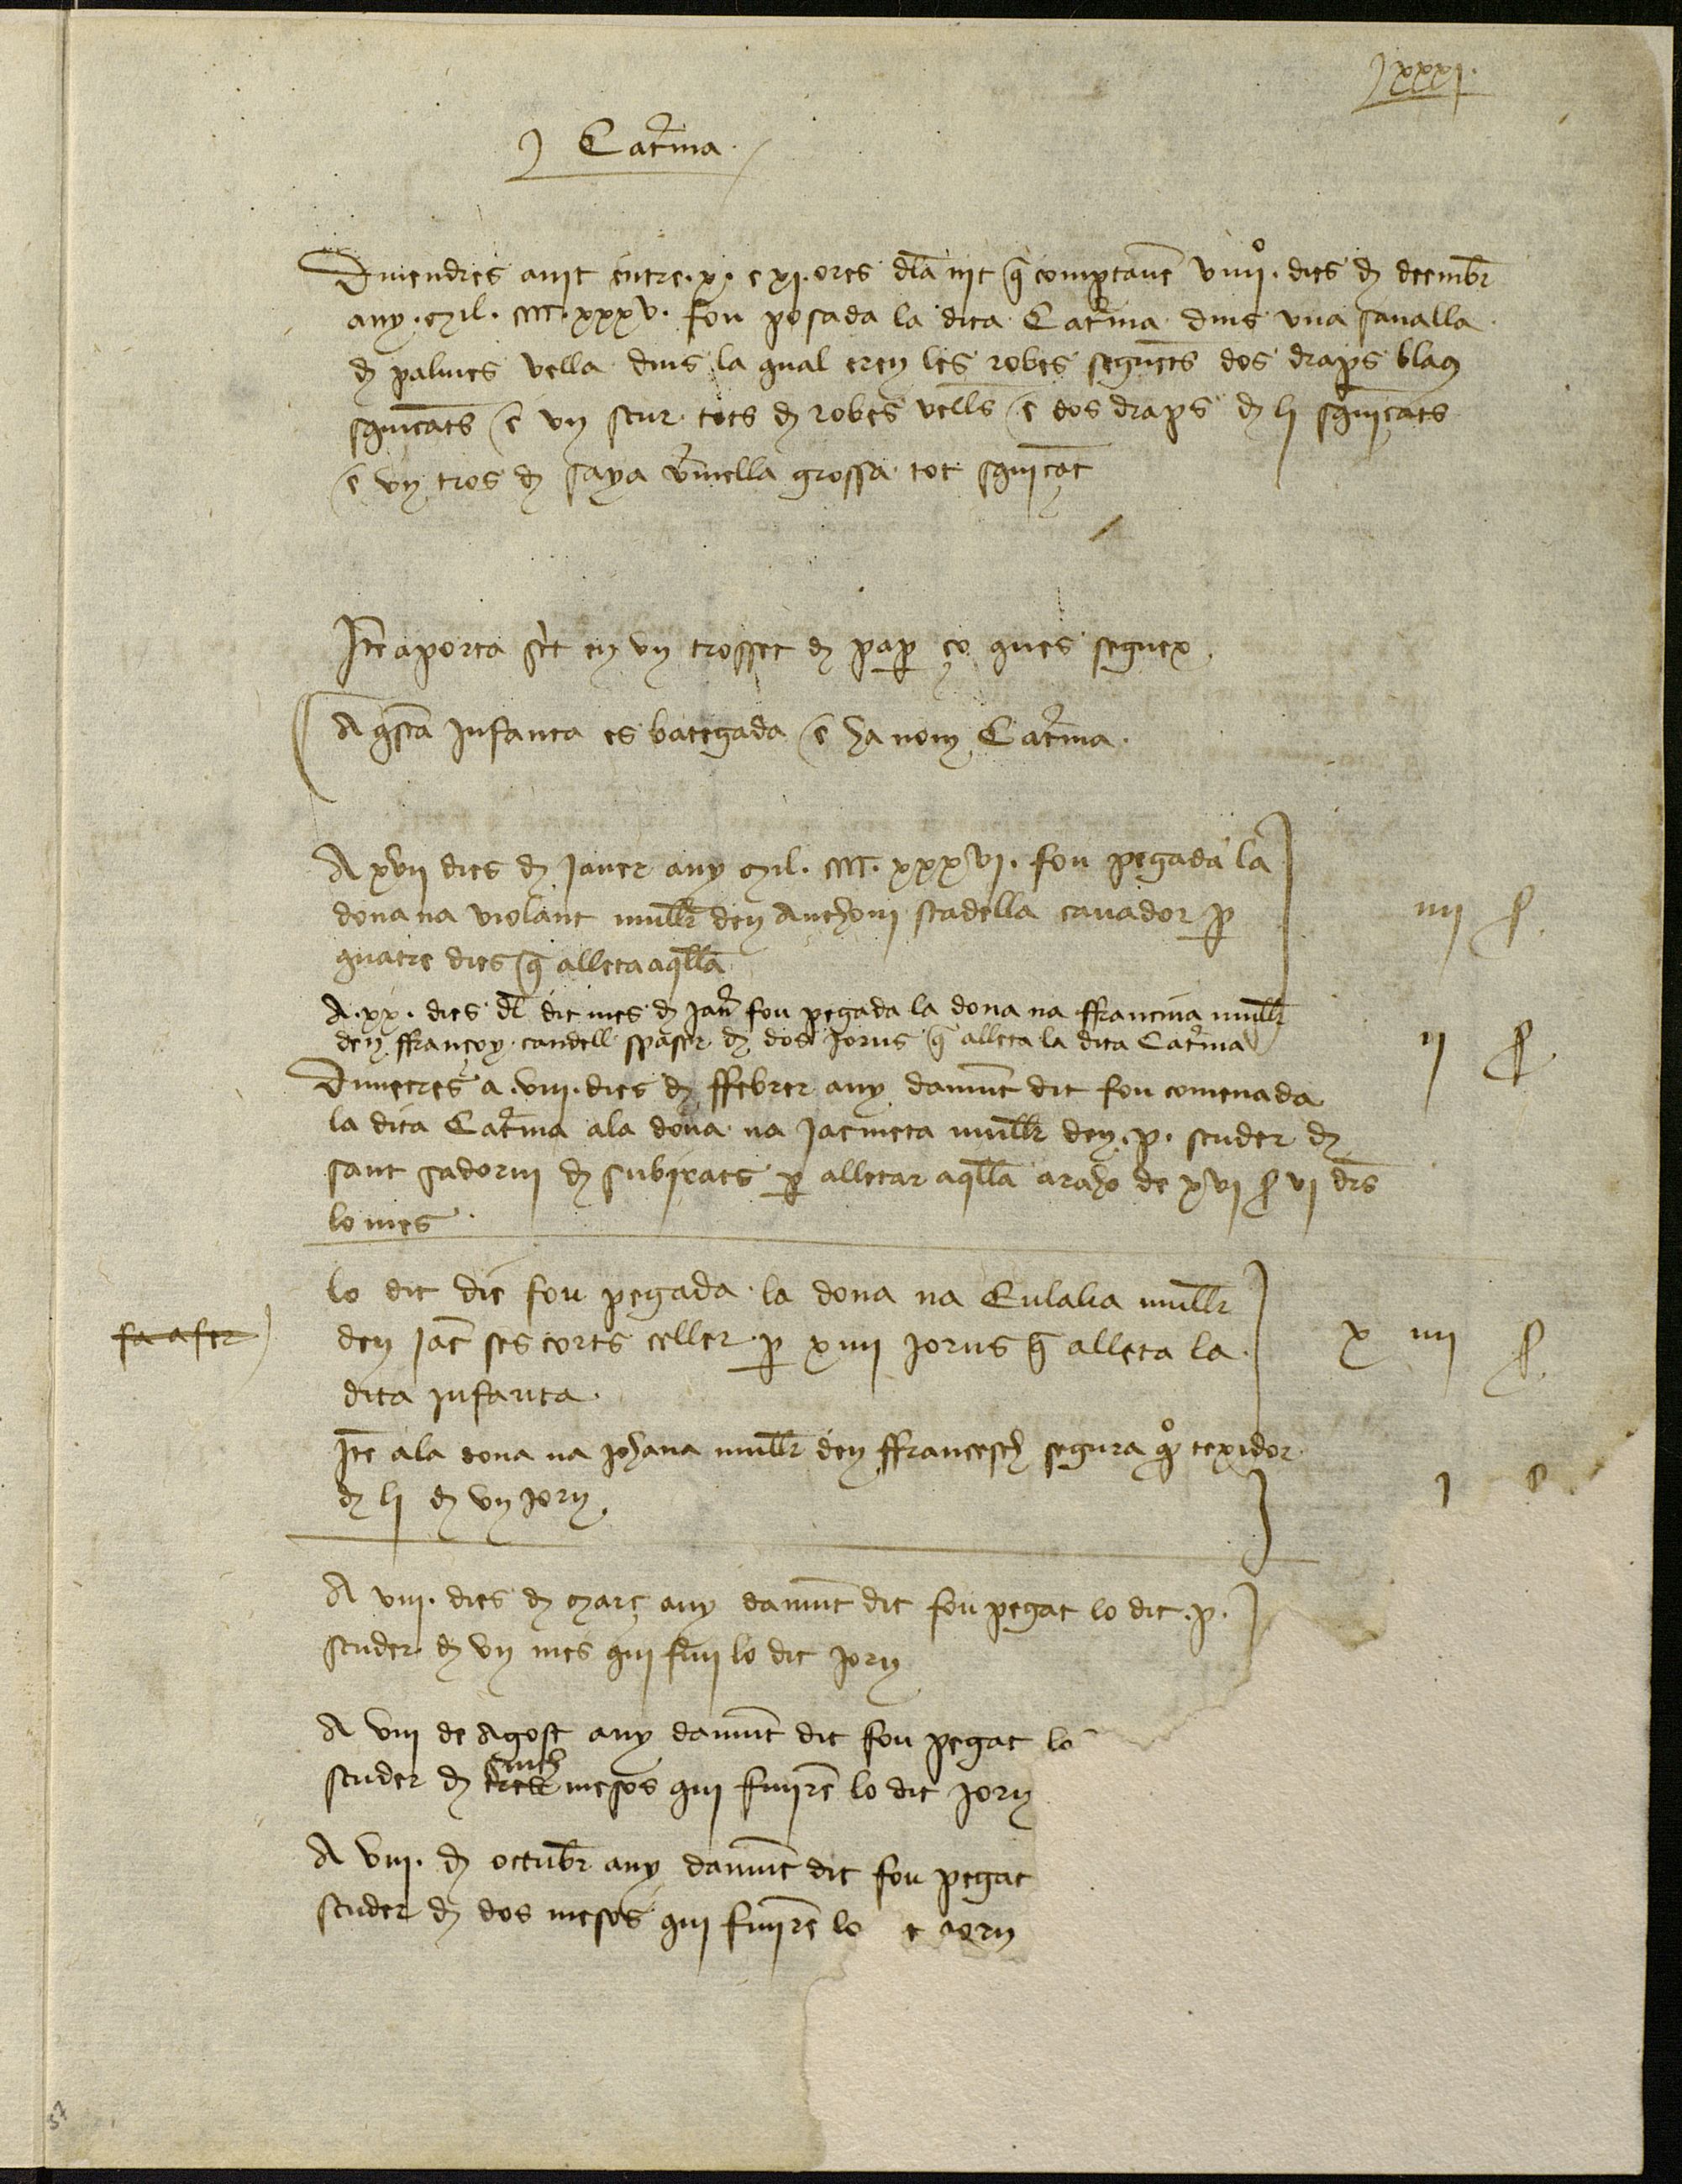 lxxxj.
J Catīna.
Divendres anit entre .x. e xi. ores dla nit q̄ comptavē viiiiº. dies d deembr̄
any .Mil. CCCC. xxxv. fou posada la dita Catīna dins una sanalla
d palmes vella dins la qual eren les robes següēts dos draps blāchs
squīçats e un scur tots d robes vells e dos draps d li squīçats
e un tros d saya vīmella grossa tot squīçat
Itē aporta scīt en un trosset d pap̄ ço ques seguex.
Aq̄sta Infanta es bategada e ha nom Catīna.
A xvii dies d Janer any Mil. CCCC. xxxvi. fou pegada la
dona na Violant mullr̄ den Anthoni Stadella cavador p̄
quatre dies q̄ alleta aq̄lla
iiii s
A .xx. dies dl dit mes d Jan̄ fou pegada la dona na ffrancina mullr̄
den ffrançoy candell spaser d dos Jorns q̄ alleta la dita Catīna
ii s
Dimecres a .viii. dies d ffebrer any damūt dit fou comenada
la dita Catīna ala dona na Jacmeta mullr̄ den .p. scuder d
sant Sadorni d Subirats p̄ alletar aq̄lla araho de xvi s vi drs
lo mes.
lo dit die fou pegada la dona na Eulalia mullr̄
fa afer
den Jac̄ ses corts celler p̄ xiiii Jorns q̄ alleta la
x iiii s
dita Infanta.
Itē ala dona na Johana mullr̄ den ffrancesch segura qº texidor
d li d un Jorn.
i s
A viii. dies d Març any damūt dit fou pegat lo dit .p.
scuder d un mes qui fini lo dit Jorn
A viii de Agost any damūt dit fou pegat lo
sinch
scuder d tres mesos qui finirē lo dit Jorn
A viii. d octubr̄ any damūt dit fou pegat
scuder d dos mesos qui finirē lo t Jorn
37